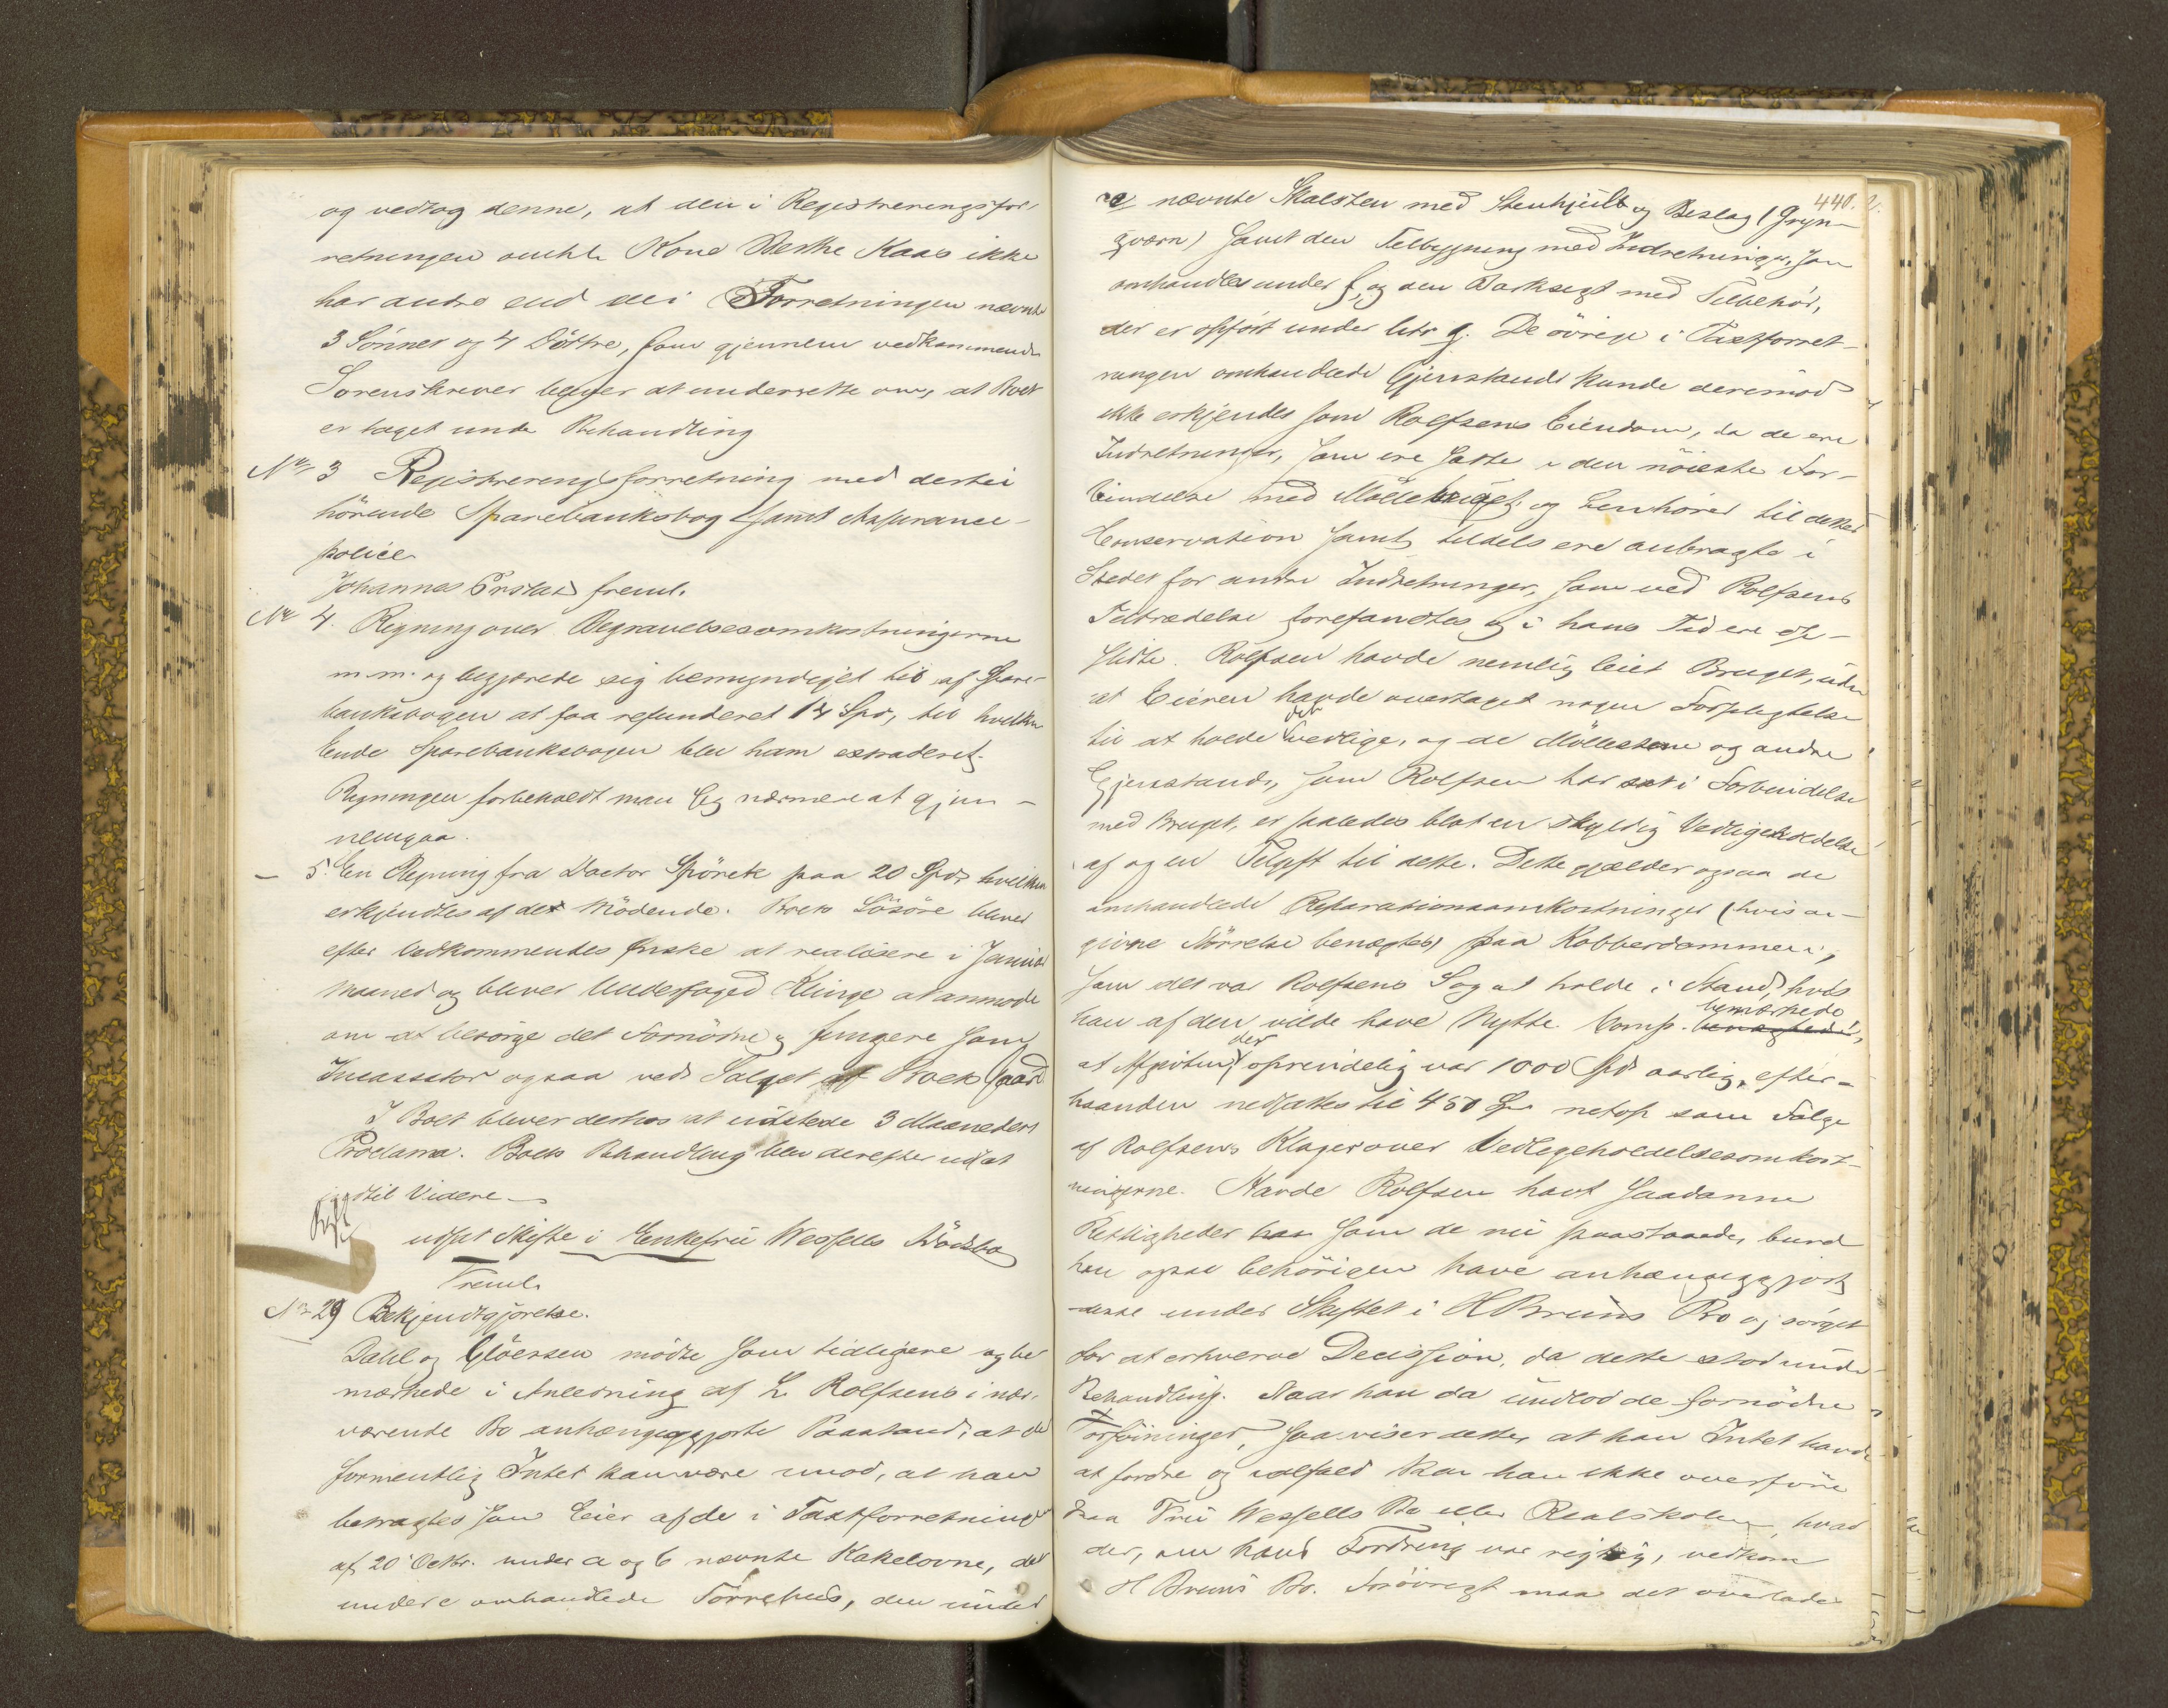 og vedtog denne, at den i Registreringsfor-
retningen omhlt Kone Berthe Kaas ikke
har andre end de i Forretningen nævnte
3 Sönner og 4 Döttre, som gjennem vedkommende
Sorenskriver bliver at underrette om, at Boet
er taget under Behandling
No 3 Registreringsforretning med dertil
hörende Sparebanksbog samt Assurance-
police
Johannes Önstad freml.
No 4. Regning over Begravelsesomkostningerne
m.m. og begjærede sig bemyndiget til af Spare-
banksbogen at faa refunderet 14 Spd, til hvilken
Ende Sparebanksbogen blev ham extraderet.
Regningen forbeholdt man sig nærmere at gjen-
nemgaa.
- 5. En Regning fra Doctor Spörck paa 20 Spd, hvilken
erkjendtes af det Mödende. Boets Lösöre bliver
efter Vedkommendes Önske at realisere i Januar
Maaned og bliver Underfoged Klinge at anmode
om at besörge det Fornödne og fungere som
Incassator ogsaa ved Salget af Boets Gaard
I Boet bliver derhos at udstede 3 Maaneders
Proclama. Boets Behandling blev derefter udsat
indtil Videre
udsat Skifte i Enkefrü Wessells Dödsbo
Freml.
No 29 Bekjendtgjörelse.
Dahl og Glöersen mödte som tidligere og be
mærkede i Anledning af L Rolfsens i nær-
værende Bo anhængiggjorte Paastand, at der
formentlig Intet kan være imod, at han
betragtes som Eier af de i Taxtforretningen
af 20 Octbr. under a og b nævnte Kakelovne, det
under c omhandlede Törrehus, den under
440. 2.
e nævnte Malsten med Stenhjul og Beslag (Gryn-
qværn) samt den Tilbygning med Indretninger, som
omhandles under f, og den Barksigt med Tilbehör,
der er opfört under litr g. De övrige i Taxtforret-
ningen omhandlede Gjenstande kunde derimod
ikke erkjendes som Rolfsens Eiendom, da de ere
Indretninger, som ere satte i den nöieste For-
bindelse med Möllebruget og henhörer til dettes
Conservation samt tildels ere anbragte i
Stedet for andre Indretninger, som ved Rolfsens
Tiltrædelse forefandtes og i hans Tid ere op-
slidte. Rolfsen havde nemlig leiet Bruget, uden
at Eieren havde overtaget nogen Forpligtelse
til at holde det vedlige, og de Möllestene og andre
Gjenstande, som Rolfsen har sat i Forbindelse
med Bruget, er saaledes blot en skyldig Vedligeholdelse
af og en Tilgift til dette. Dette gjælder ogsaa de
omhandlede Reparationsomkostninger (hvis an-
givne Störrelse benægtes) paa Kobberdammen,
som det var Rolfsens Sag at holde i Stand, hvis
han af den vilde have Nytte. Comp. bemærkede
at Afgiften, der oprindelig var 1000 Spd aarlig, efter-
haanden nedsattes til 450 Spd netop som Fölge
af Rolfsens Klager over Vedligeholdelsesomkost-
ningerne. Havde Rolfsen havt saadanne
Rettigheder som de nu paastaaede, burde
han ogsaa behörigen have anhængiggjort
disse under Skiftet i H Bruns Bo og sörget
for at erhverve Decission, da dette stod under
Behandling. Naar han da undlod de fornödne
Forföininger, saa viser dette, at han Intet havde
at fordre og ialfald kan han ikke overföre
paa Frü Wessells Bo eller Realskolen, hvad
der, om hans Fordring var rigtig, vedkom
H Bruns Bo. Forövrigt maa det overlades